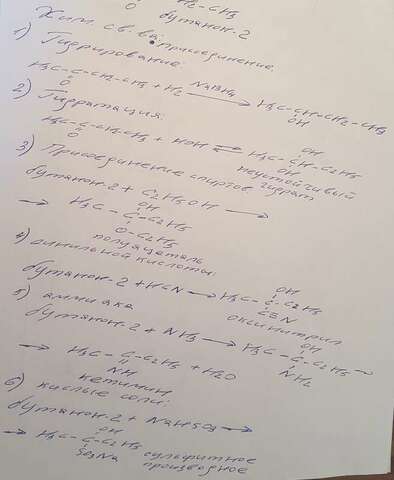 O
H2-CH3
бутанон-2
Хим. св-ва: присоединение
1) Гидрирование:
H3C-C-CH2-CH3 + H2 NaBH4 → H3C-CH-CH2-CH3
O
OH
2) Гидратация:
H3C-C-CH2CH3 + HOH ⇌ H3C-CH-C2H5
O
OH
OH
неустойчивый
гидрат
3) Присоединение спиртов
бутанон-2 + C2H5OH →
OH
→ H3C-C-C2H5
O-C2H5
полуацеталь
4) синильной кислоты:
OH
бутанон-2 + HCN → H3C-C-C2H5
C≡N
оксинитрил
5) аммиака
OH
бутанон-2 + NH3 → H3C-C-C2H5 →
NH2
→ H3C-C-C2H5 + H2O
NH
кетимин
6) кислые соли:
бутанон-2 + NaHSO3 →
OH
→ H3C-C-C2H5 сульфитное
SO3Na производное